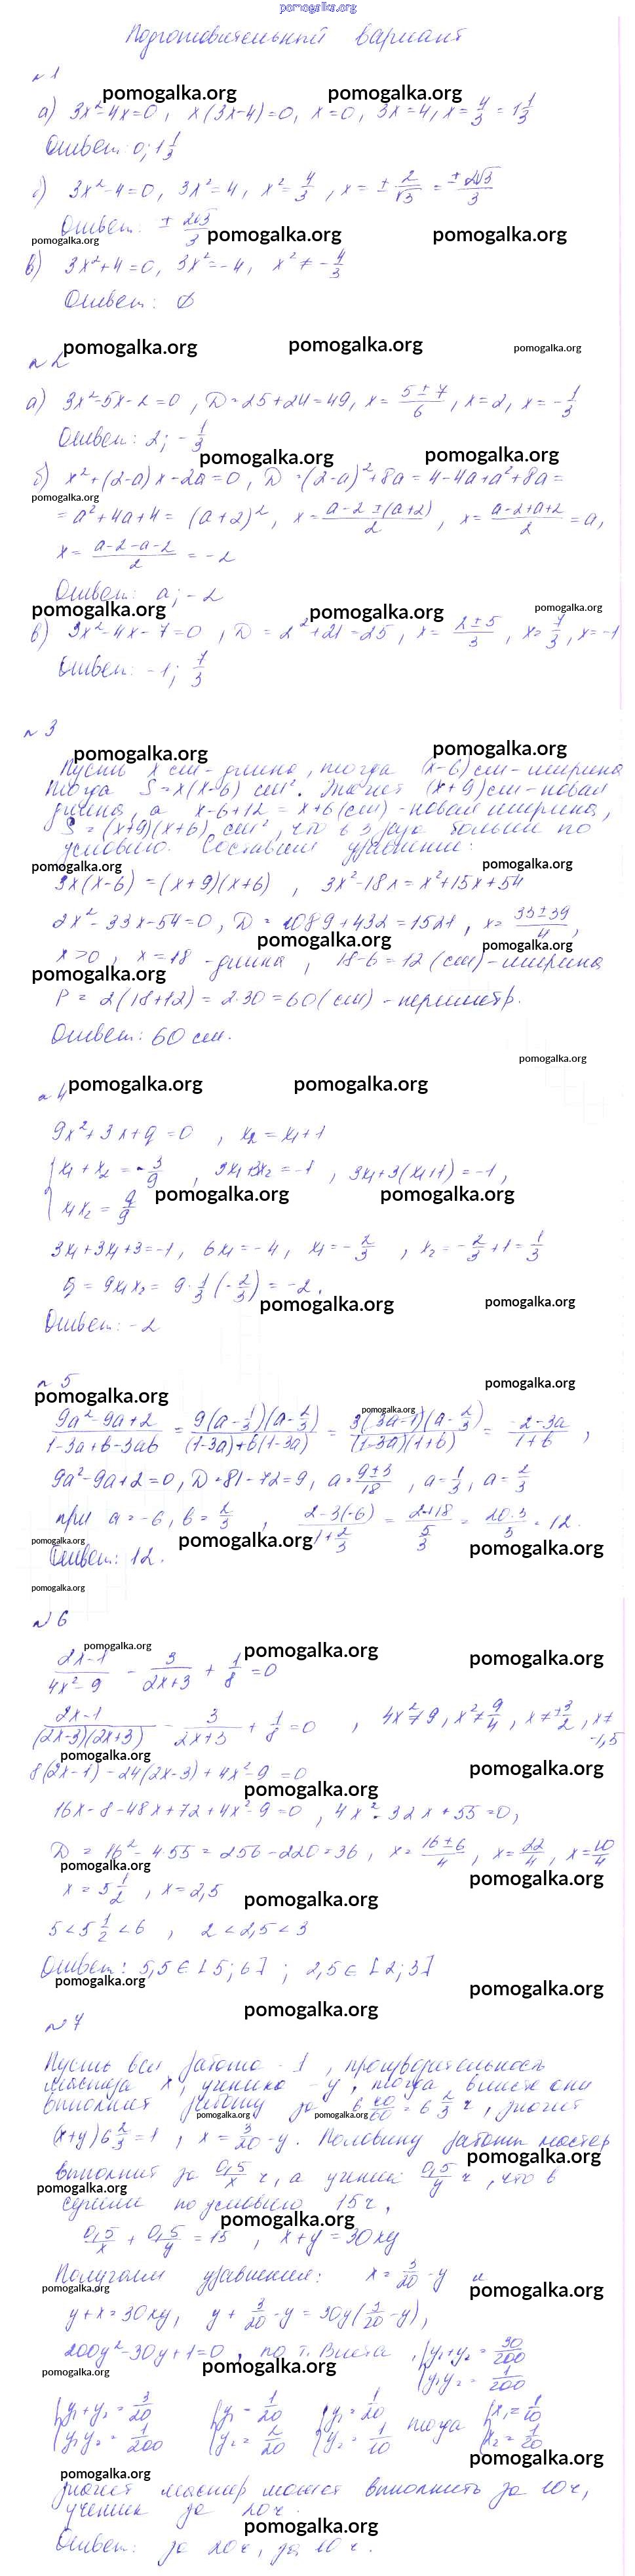 pomogalka.org
Подготовительный вариант
№1
pomogalka.org pomogalka.org
а) 3x²-4x=0, x(3x-4)=0, x=0, 3x=4, x=4/3=1 1/3
Ответ: 0; 1 1/3
б) 3x²-4=0, 3x²=4, x²=4/3, x=±2/√3=±2√3/3
Ответ: ±2√3/3
pomogalka.org pomogalka.org pomogalka.org
в) 3x²+4=0, 3x²=-4, x²≠-4/3
Ответ: ∅
pomogalka.org pomogalka.org pomogalka.org
№2
а) 3x²-5x-2=0, D=25+24=49, x=(5±7)/6, x=2, x=-1/3
Ответ: 2; -1/3
pomogalka.org pomogalka.org
б) x²+(2-a)x-2a=0, D=(2-a)²+8a=4-4a+a²+8a=
pomogalka.org
=a²+4a+4=(a+2)², x=(a-2±(a+2))/2, x=(a-2+a+2)/2=a,
x=(a-2-a-2)/2=-2
Ответ: a; -2
pomogalka.org pomogalka.org pomogalka.org
в) 3x²-4x-7=0, D=2²+21=25, x=(2±5)/3, x=7/3, x=-1
Ответ: -1; 7/3
№3
pomogalka.org pomogalka.org
Пусть x см-длина, тогда (x-6)см-ширина
Тогда S=x(x-6) см². Значит (x+9)см-новая
длина, а x-6+12=x+6(см)-новая ширина,
S=(x+9)(x+6) см², что в 3 раза больше по
условию. Составим уравнение:
pomogalka.org pomogalka.org
3x(x-6)=(x+9)(x+6), 3x²-18x=x²+15x+54
2x²-33x-54=0, D=1089+432=1521, x=(33±39)/4,
pomogalka.org pomogalka.org
x>0, x=18 -длина, 18-6=12(см)-ширина
pomogalka.org
P=2(18+12)=2·30=60(см)-периметр.
Ответ: 60 см.
pomogalka.org
№4
pomogalka.org pomogalka.org
9x²+3x+q=0, x₂=x₁+1
{x₁+x₂=-3/9, 3x₁+3x₂=-1, 3x₁+3(x₁+1)=-1,
{x₁x₂=q/9
pomogalka.org pomogalka.org
3x₁+3x₁+3=-1, 6x₁=-4, x₁=-2/3, x₂=-2/3+1=1/3
q=9x₁x₂=9·1/3(-2/3)=-2.
pomogalka.org pomogalka.org
Ответ: -2
№5
pomogalka.org pomogalka.org
(9a²-9a+2)/(1-3a+b-3ab)=9(a-1/3)(a-2/3)/((1-3a)+b(1-3a))=3(3a-1)(a-2/3)/((1-3a)(1+b))=(2-3a)/(1+b),
pomogalka.org
9a²-9a+2=0, D=81-72=9, a=(9±3)/18, a=1/3, a=2/3
при a=-6, b=2/3, (2-3(-6))/(1+2/3)=(2+18)/(5/3)=20·3/5=12.
pomogalka.org pomogalka.org pomogalka.org
Ответ: 12.
pomogalka.org
№6
pomogalka.org pomogalka.org pomogalka.org
(2x-1)/(4x²-9)-3/(2x+3)+1/8=0
(2x-1)/((2x-3)(2x+3))-3/(2x+3)+1/8=0, 4x²≠9, x²≠9/4, x≠±3/2, x≠
-1,5
pomogalka.org pomogalka.org
8(2x-1)-24(2x-3)+4x²-9=0
pomogalka.org
16x-8-48x+72+4x²-9=0, 4x²-32x+55=0,
D=16²-4·55=256-220=36, x=(16±6)/4, x=22/4, x=10/4
pomogalka.org pomogalka.org
x=5 1/2, x=2,5
pomogalka.org
5<5 1/2<6, 2<2,5<3
Ответ: 5,5∈[5;6]; 2,5∈[2;3]
pomogalka.org pomogalka.org
pomogalka.org
№7
Пусть вся работа - 1, производительность
мастера x, ученика -y, тогда вместе они
выполнят работу за 6 40/60=6 2/3 ч, значит
pomogalka.org pomogalka.org
(x+y)6 2/3=1, x=3/20-y. Половину работы мастер
pomogalka.org
выполнит за 0,5/x ч, а ученик 0,5/y ч, что в
pomogalka.org
сумме по условию 15ч,
pomogalka.org
0,5/x+0,5/y=15, x+y=30xy
Получаем уравнения: x=3/20-y и
pomogalka.org pomogalka.org
y+x=30xy, y+3/20-y=30y(3/20-y),
200y²-30y+1=0, по т. Виета, {y₁+y₂=30/200
{y₁y₂=1/200
pomogalka.org pomogalka.org
{y₁+y₂=3/20 {y₁=1/20 {y₁=1/20 тогда {x₁=1/10
{y₁y₂=1/200 {y₂=2/20 {y₂=1/10 {x₂=1/20
pomogalka.org
pomogalka.org
значит мастер может выполнить за 10ч,
ученик за 20ч.
pomogalka.org
Ответ: за 20ч, за 10ч.